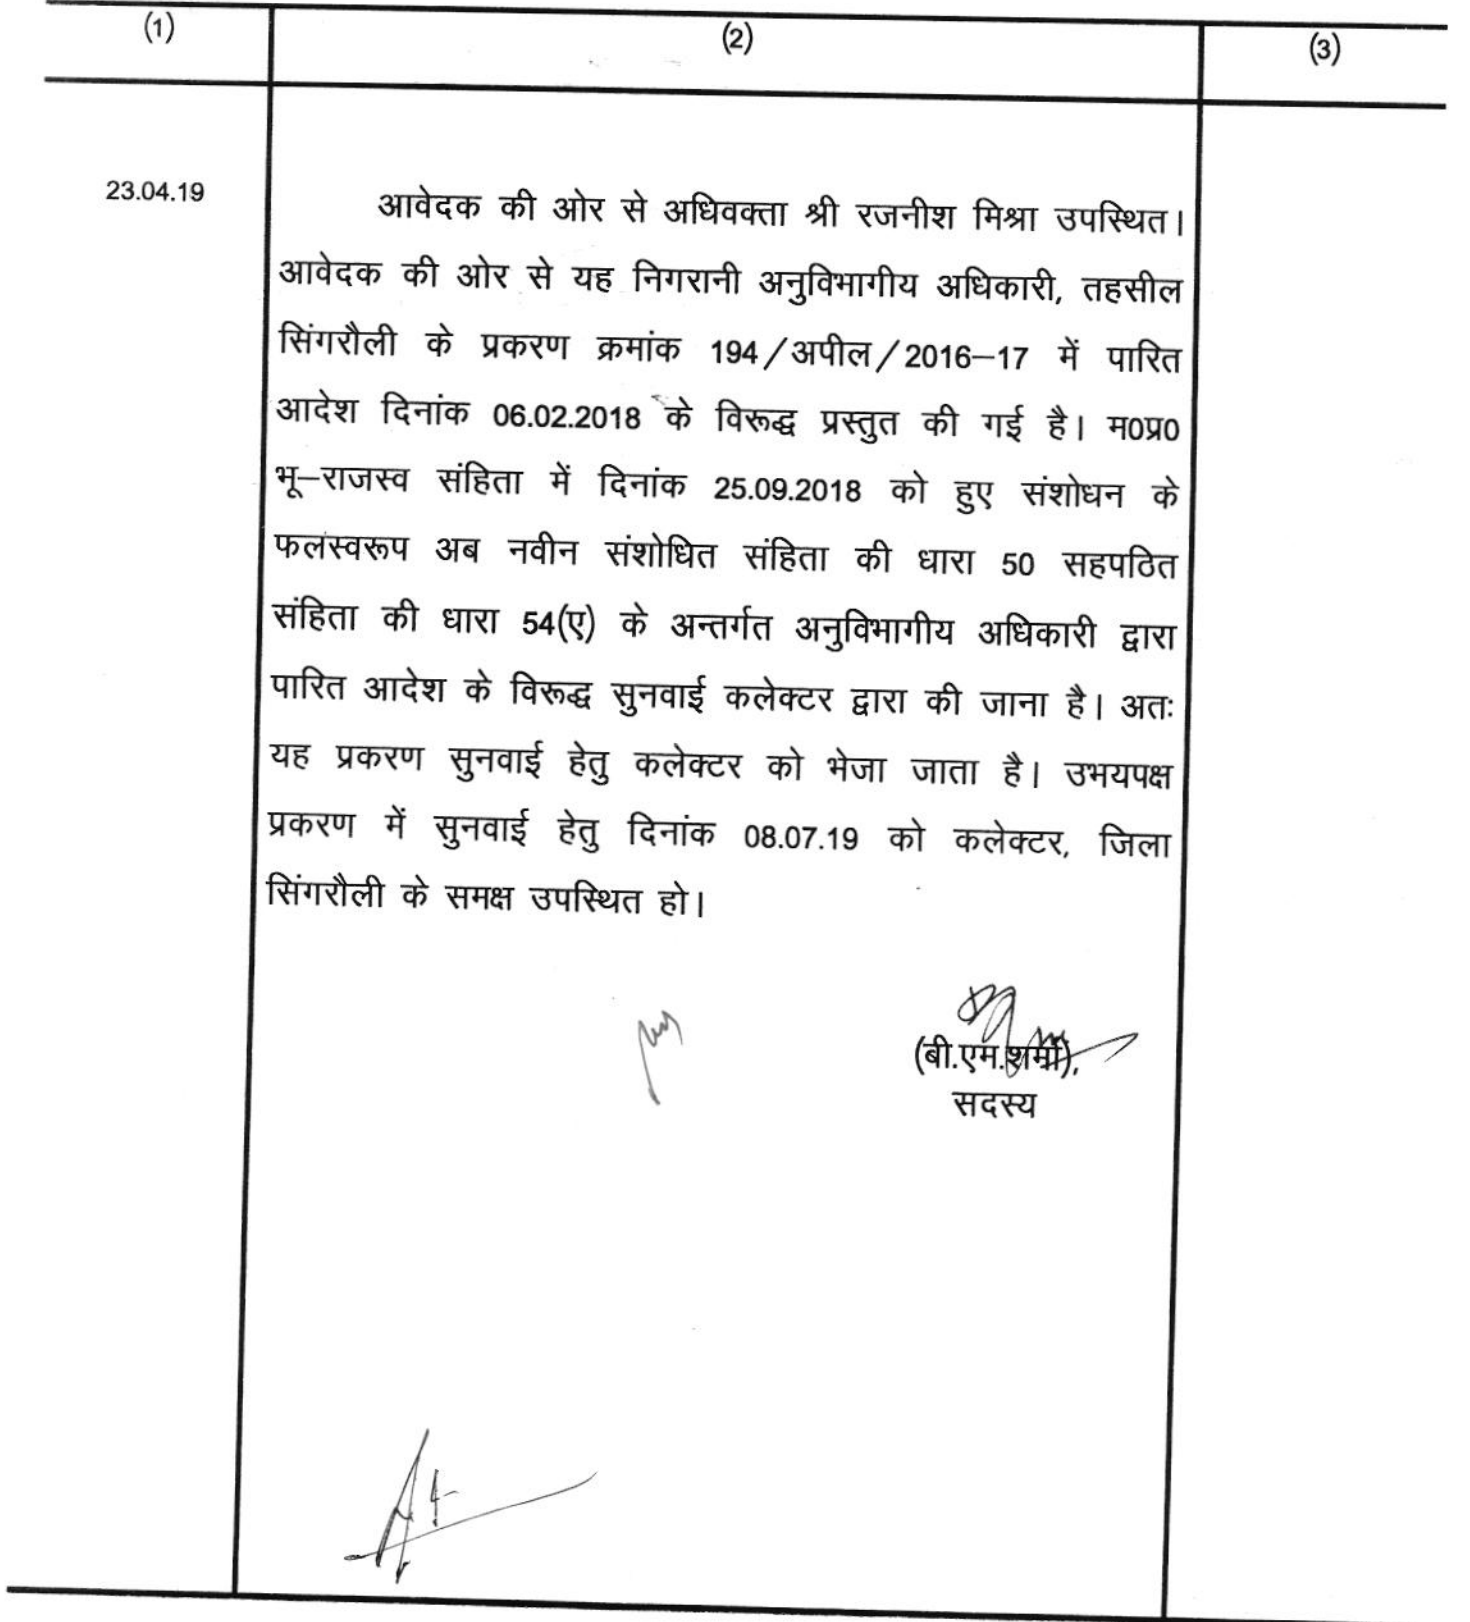 (1)
(2)
(3)
23.04.19
आवेदक की ओर से अधिवक्ता श्री रजनीश मिश्रा उपस्थित।
आवेदक की ओर से यह निगरानी अनुविभागीय अधिकारी, तहसील
सिंगरौली के प्रकरण क्रमांक 194/अपील/2016–17 में पारित
आदेश दिनांक 06.02.2018 के विरूद्ध प्रस्तुत की गई है। म0प्र0
भू–राजस्व संहिता में दिनांक 25.09.2018 को हुए संशोधन के
फलस्वरूप अब नवीन संशोधित संहिता की धारा 50 सहपठित
संहिता की धारा 54(ए) के अन्तर्गत अनुविभागीय अधिकारी द्वारा
पारित आदेश के विरूद्ध सुनवाई कलेक्टर द्वारा की जाना है। अतः
यह प्रकरण सुनवाई हेतु कलेक्टर को भेजा जाता है। उभयपक्ष
प्रकरण में सुनवाई हेतु दिनांक 08.07.19 को कलेक्टर, जिला
सिंगरौली के समक्ष उपस्थित हो।
(बी.एम.शर्मा),
सदस्य